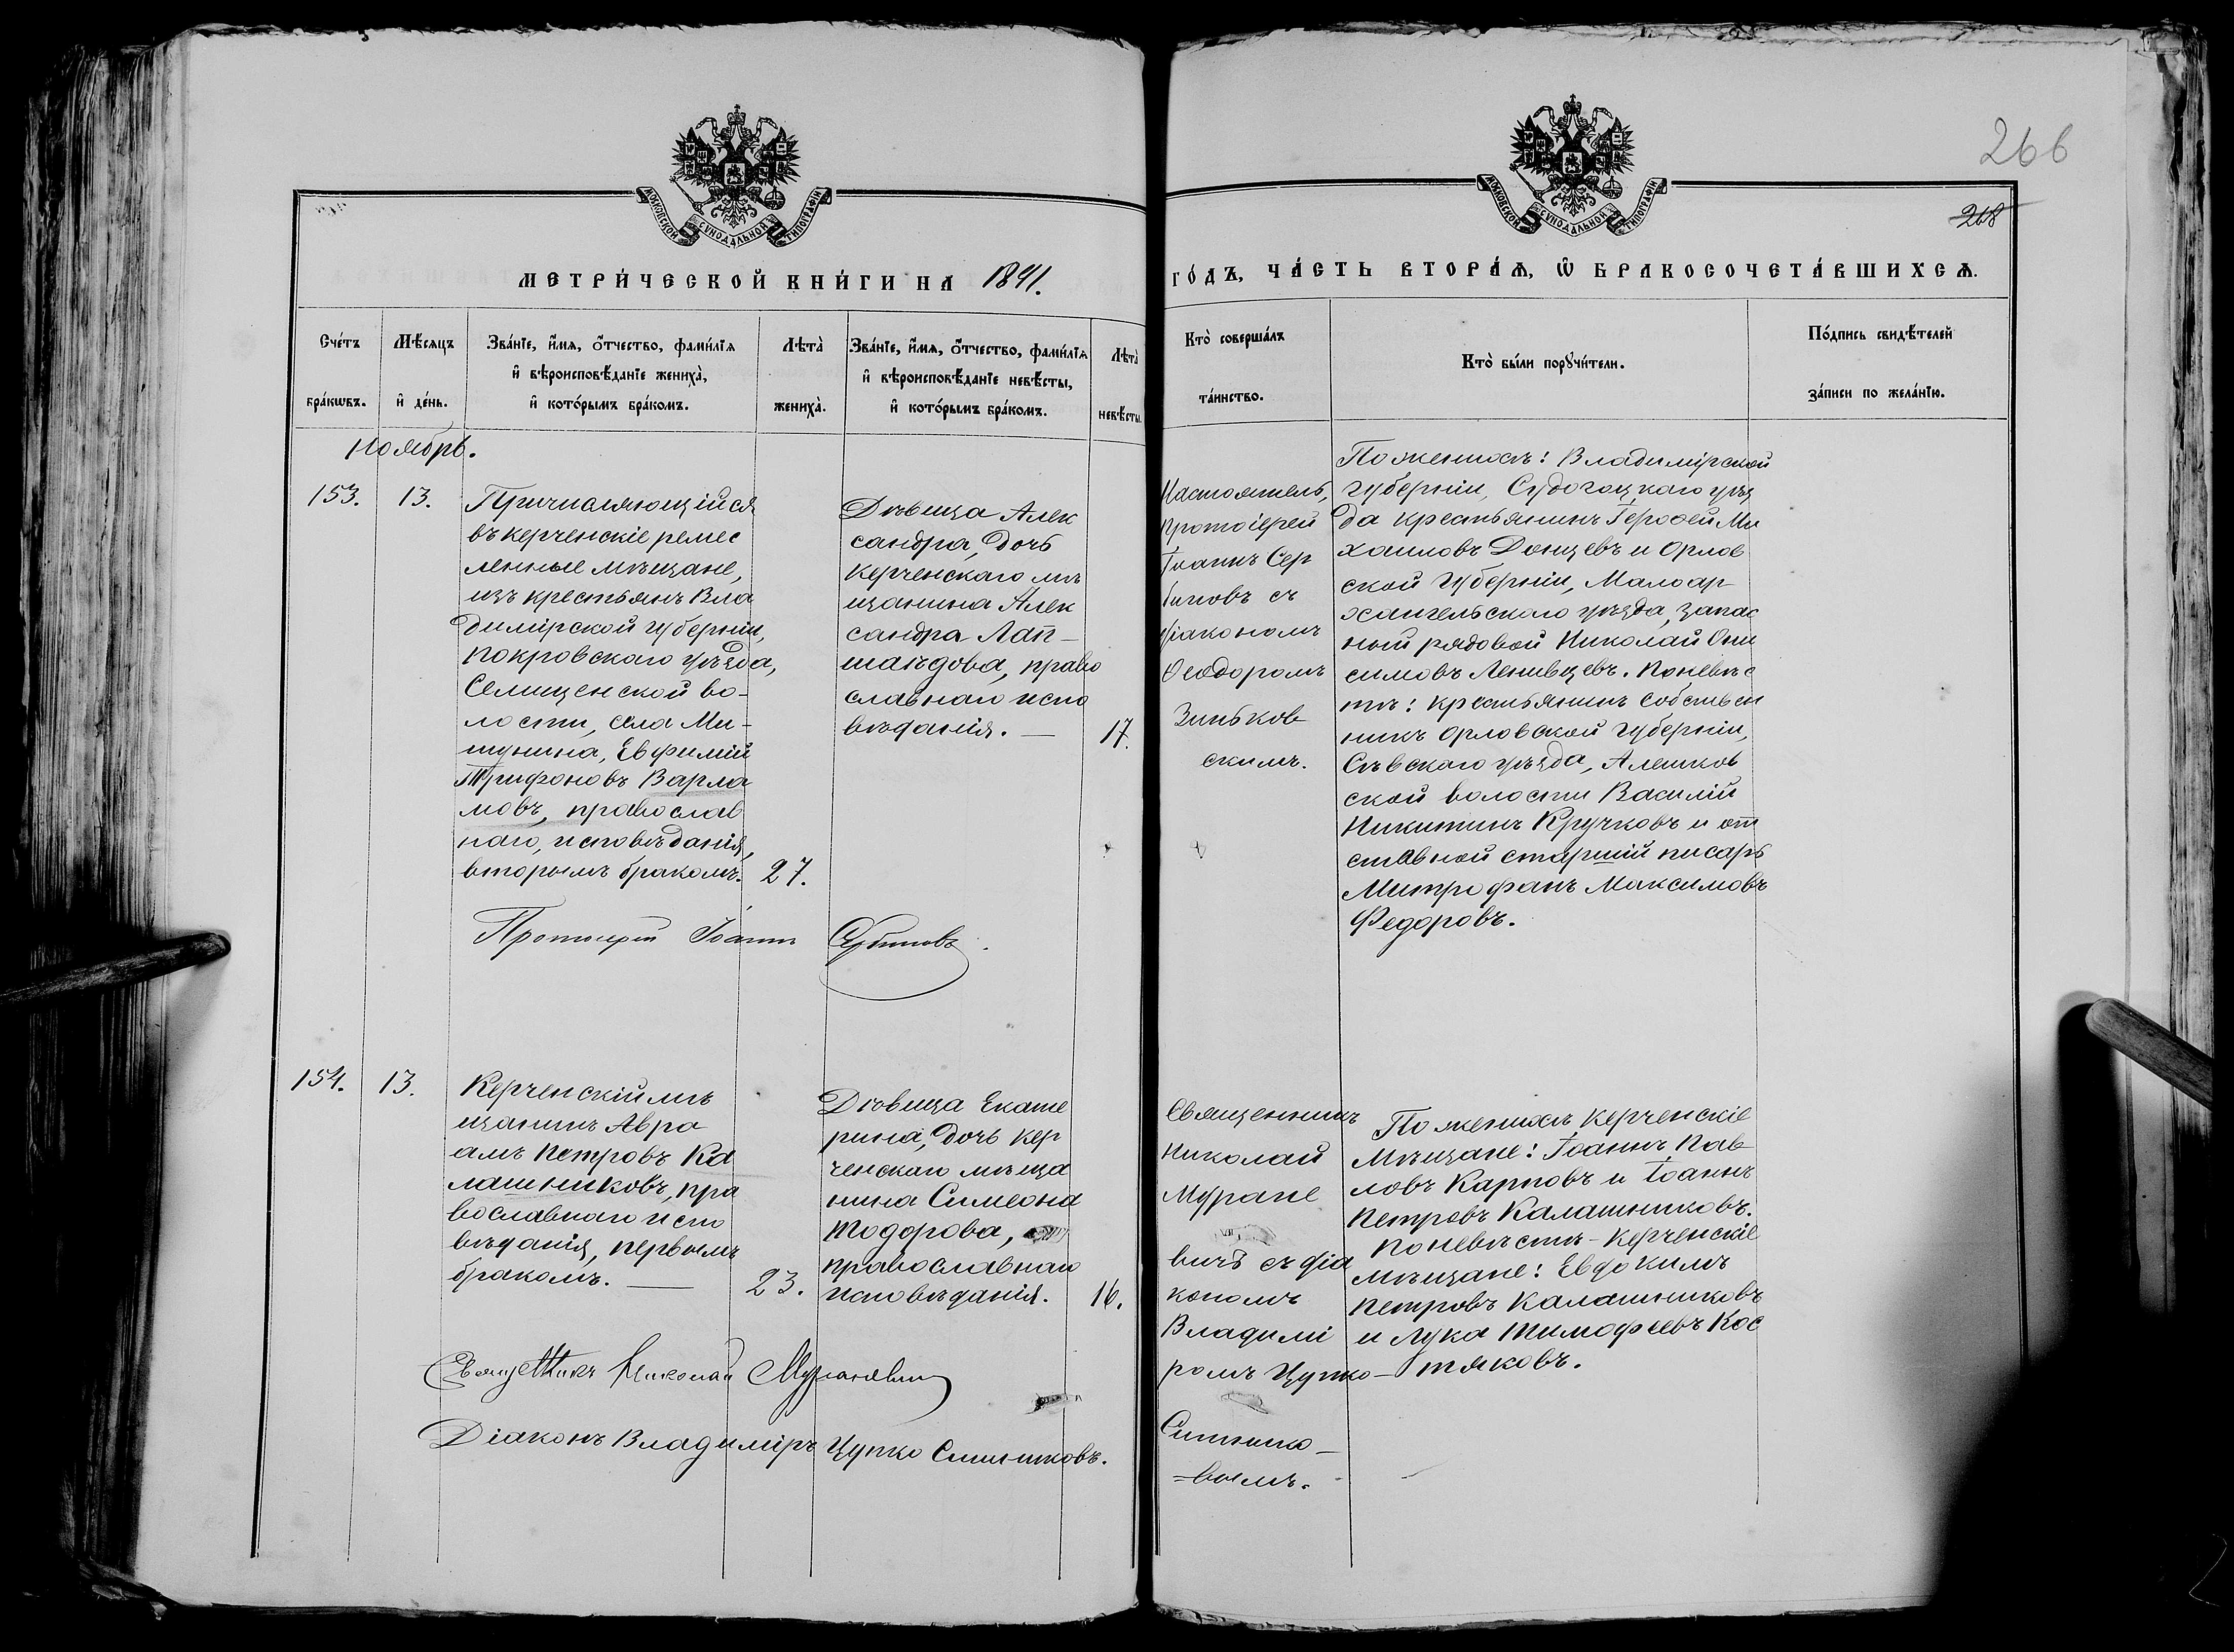 266
268
МОСКОВСКОЙ СѴНОДАЛЬНОЙ ТИПОГРАФІИ
МОСКОВСКОЙ СѴНОДАЛЬНОЙ ТИПОГРАФІИ
МЕТРИ́ЧЕСКОЙ КНИ́ГИ НА 1891.
ГО́ДЪ, ЧА́СТЬ ВТОРА́Ѧ, Ѡ҆ БРАКОСОЧЕТА́ВШИХСѦ.
Сче́тъ
бра́кѡвъ.
Мѣ́сѧцъ
и҆ де́нь.
Зва́нїе, и҆́мѧ, ѻ҆́тчество, фами́лїѧ
и҆ вѣроисповѣ́данїе жениха̀,
и҆ кото́рымъ бра́комъ.
Лѣта̀
жениха̀.
Зва́нїе, и҆́мѧ, ѻ҆́тчество, фами́лїѧ
и҆ вѣроисповѣ́данїе невѣ́сты,
и҆ кото́рымъ бра́комъ.
Лѣта̀
невѣ́сты.
Кто̀ соверша́лъ
та́инство.
Кто̀ бы́ли порꙋчи́тели.
По́дпись свидѣ́телей
за́писи по жела́нїю.
Ноябрь.
153.
13.
Причисляющійся
въ керченскіе ремес
ленные мѣщане,
изъ крестьянъ Вла
димірской губерніи,
Покровскаго уѣзда,
Селищенской во-
лости, села Ми-
шунина, Евфимій
Трифоновъ Варла
мовъ, православ
наго, исповѣданія,
вторымъ бракомъ.
27.
Дѣвица Алек
сандра, дочь
керченскаго мѣ
щанина Алек
сандра Лап-
шандова, право
славнаго испо
вѣданія. —
17.
Настоятель,
Протоіерей
Іоаннъ Сер
биновъ съ
діакономъ
Ѳеодоромъ
Зиньков
скимъ.
По женихѣ: Владимірской
губерніи, Судогоцкаго уѣз
да крестьянинъ Герофей Ми
хаиловъ Донцевъ и Орлов
ской губерніи, Малоар
хангельскаго уѣзда, запас
ный рядовой Николай Они
симовъ Ленивцевъ. По невѣс
тѣ: крестьянинъ собствен
никъ Орловской губерніи,
Сѣвскаго уѣзда, Алешков
ской волости Василій
Никитинъ Кручковъ и от
ставной старшій писарь
Митрофанъ Максимовъ
Федоровъ.
Протоіерей Іоаннъ Сербиновъ.
154.
13.
Керченскій мѣ
щанинъ Авра
амъ Петровъ Ка
лашниковъ, пра
вославнаго испо
вѣданія, первымъ
бракомъ. —
23.
Дѣвица Екате
рина, дочь кер
ченскаго мѣща
нина Симеона
Тодорова,
православнаго
исповѣданія.
16.
Священникъ
Николай
Муране
вичъ съ діа
кономъ
Владимі
ромъ Цупко-
Ситнико-
=вымъ.
По женихѣ керченскіе
мѣщане: Іоаннъ Пав
ловъ Карповъ и Іоаннъ
Петровъ Калашниковъ.
По невѣстѣ - керченскіе
мѣщане: Евдокимъ
Петровъ Калашниковъ
и Лука Тимофеевъ Кос
тяковъ.
Священникъ Николай Мураневич
Діаконъ Владиміръ Цупко Ситниковъ.